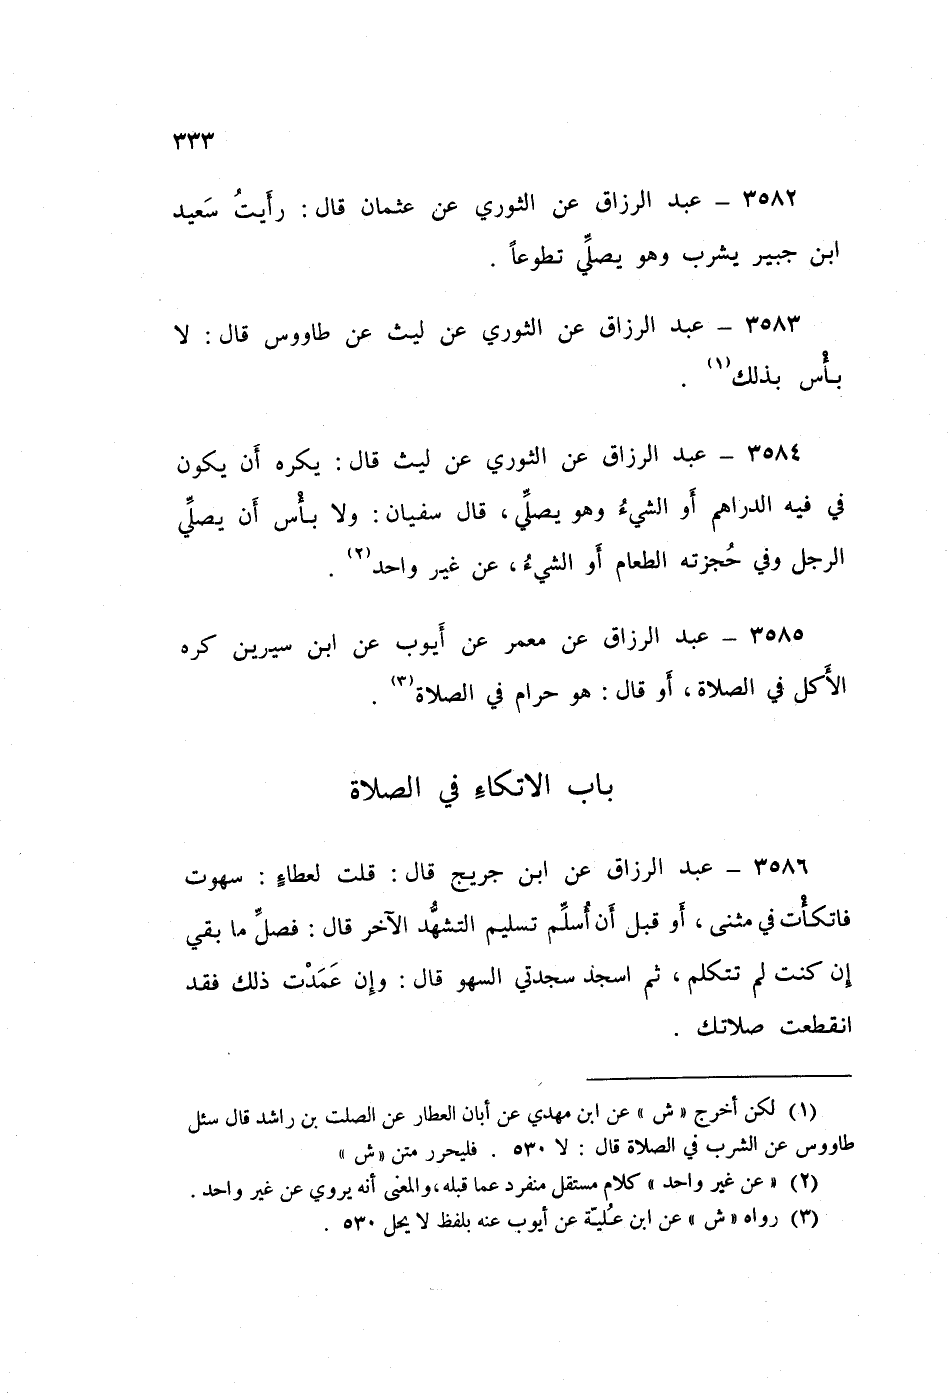 ٣٣٣
٣٥٨٢ ــ عبد الرزاق عن الثوري عن عثمان قال : رأَيتُ سَعيد
ابن جبير يشرب وهو يصلِّي تطوعاً .
٣٥٨٣ ــ عبد الرزاق عن الثوري عن ليث عن طاووس قال : لا
بأْس بذلك(١) .
٣٥٨٤ ــ عبد الرزاق عن الثوري عن ليث قال : يكره أَن يكون
في فيه الدراهم أَو الشيءُ وهو يصلِّي ، قال سفيان : ولا بأْس أَن يصلِّي
الرجل وفي حُجزته الطعام أَو الشيءُ ، عن غير واحد(٢) .
٣٥٨٥ ــ عبد الرزاق عن معمر عن أَيوب عن ابن سيرين كره
الأَكل في الصلاة ، أَو قال : هو حرام في الصلاة(٣) .
باب الاتكاءِ في الصلاة
٣٥٨٦ ــ عبد الرزاق عن ابن جريج قال : قلت لعطاءٍ : سهوت
فاتكأْت في مثنى ، أَو قبل أَن أُسلِّم تسليم التشهُّد الآخر قال : فصلِّ ما بقي
إن كنت لم تتكلم ، ثم اسجد سجدتي السهو قال : وإن عَمَدْت ذلك فقد
انقطعت صلاتك .
(١) لكن أخرج « ش » عن ابن مهدي عن أبان العطار عن الصلت بن راشد قال سئل
طاووس عن الشرب في الصلاة قال : لا ٥٣٠ . فليحرر متن « ش »
(٢) « عن غير واحد » كلام مستقل منفرد عما قبله ، والمعنى أنه يروي عن غير واحد .
(٣) رواه « ش » عن ابن عُليّة عن أيوب عنه بلفظ لا يحل ٥٣٠ .